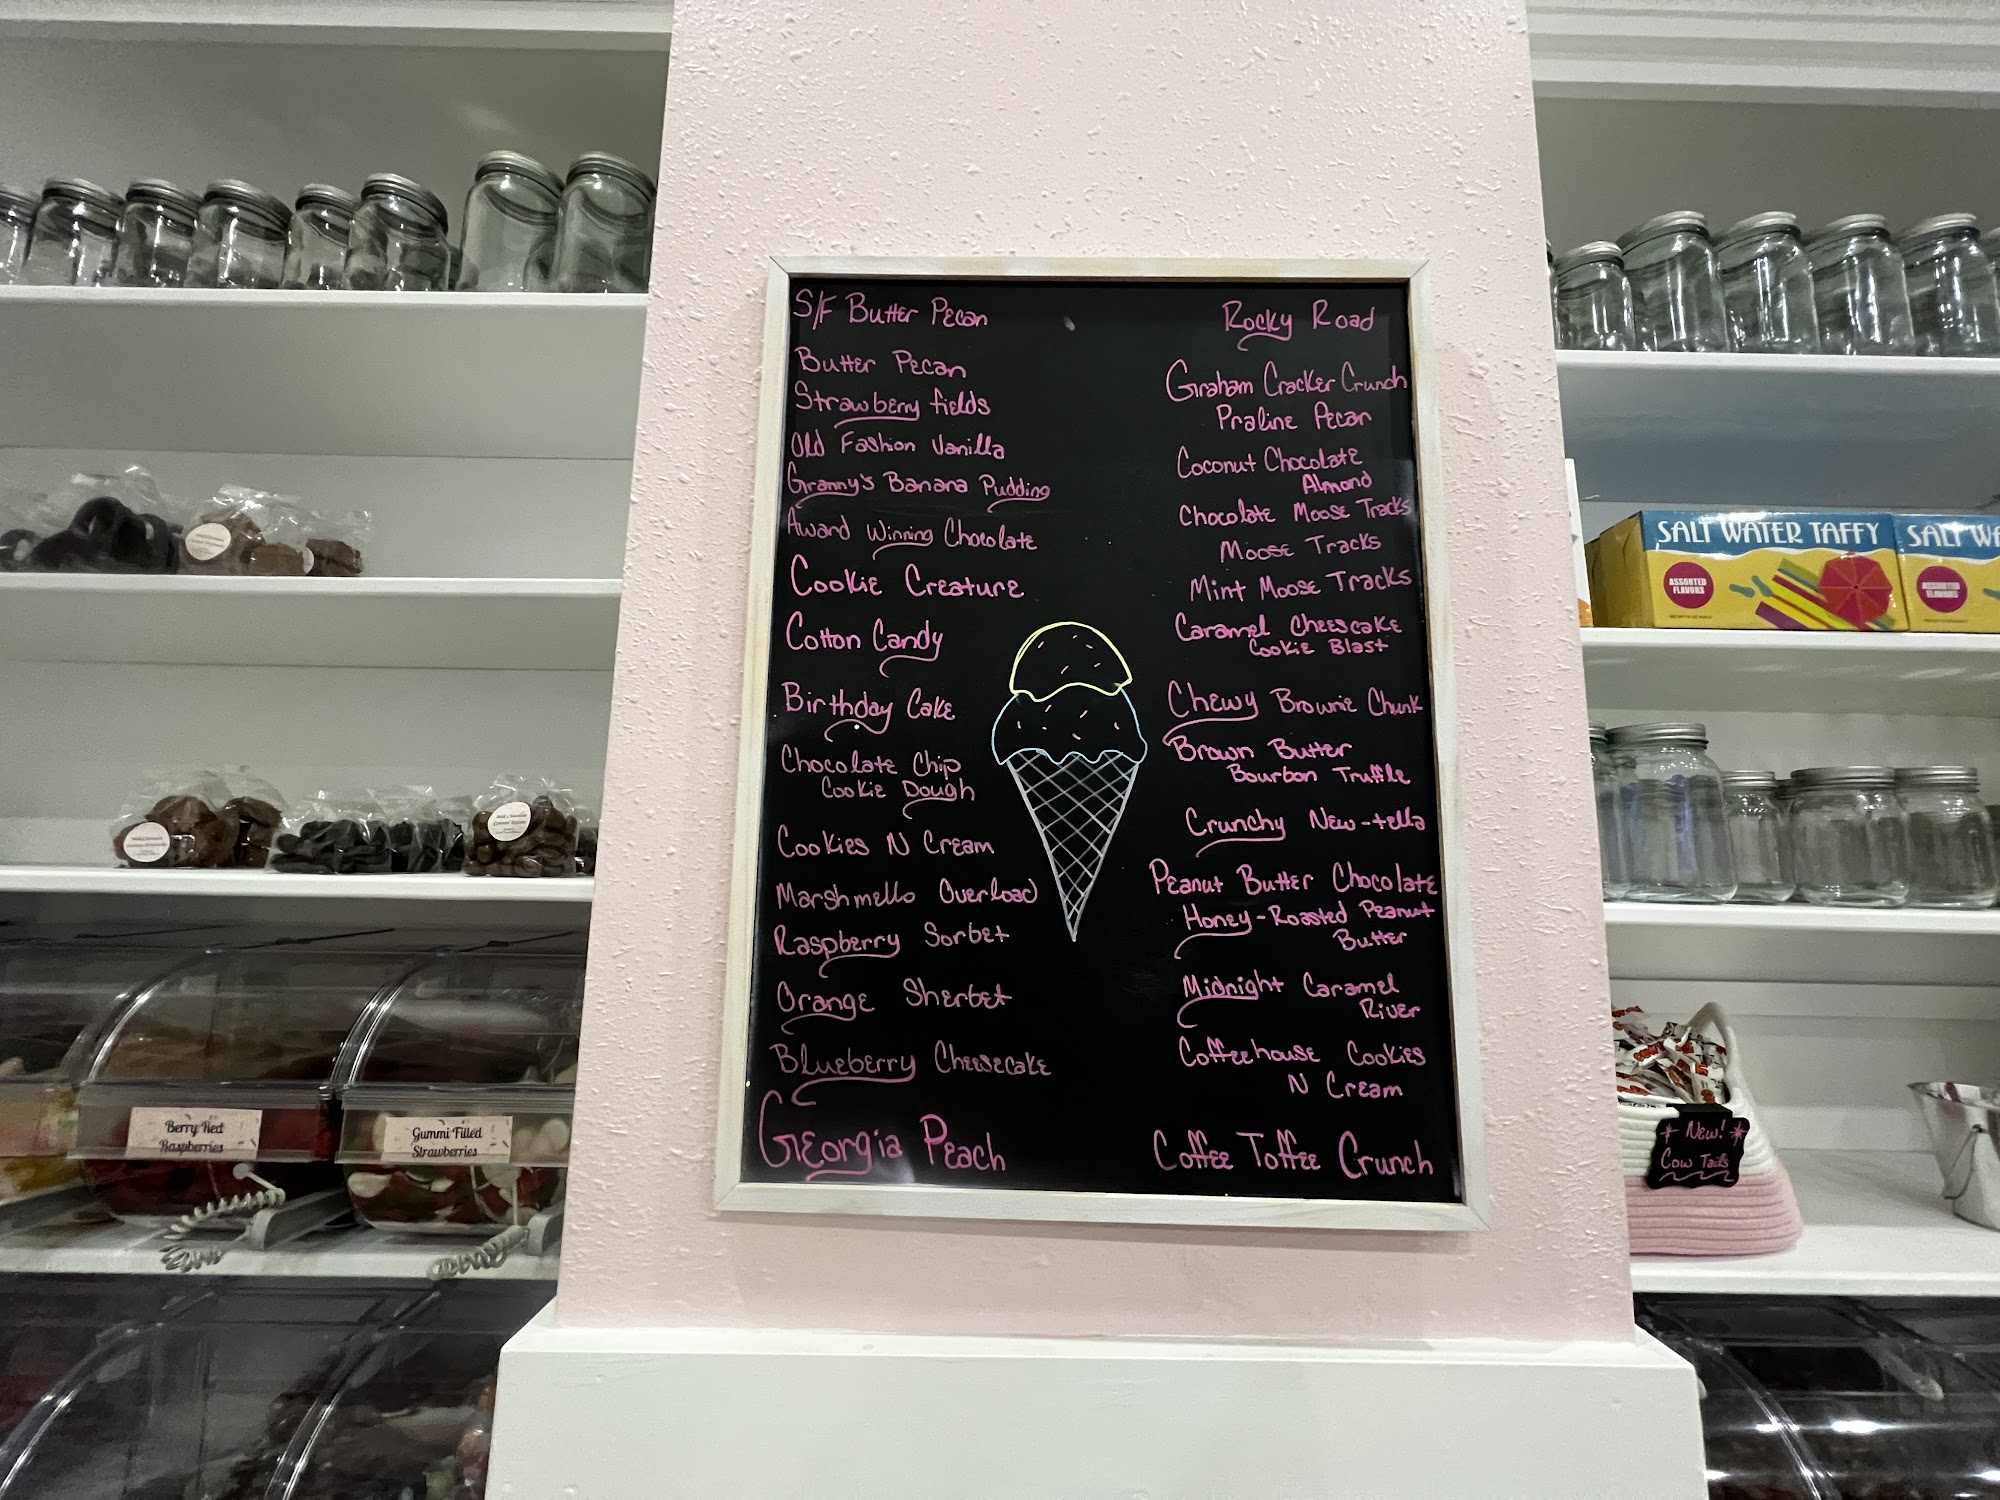 S/F Butter Pecan
Butter Pecan
Strawberry fields
Old Fashion Vanilla
Granny's Banana Pudding
Award Winning Chocolate
Cookie Creature
Cotton Candy
Birthday Cake
Chocolate Chip
Cookie Dough
Cookies N Cream
Marshmello Overload
Raspberry Sorbet
Orange Sherbet
Blueberry Cheesecake
Georgia Peach
Rocky Road
Graham Cracker Crunch
Praline Pecan
Coconut Chocolate
Almond
Chocolate Moose Tracks
Moose Tracks
Mint Moose Tracks
Caramel Cheescake
Cookie Blast
Chewy Brownie Chunk
Brown Butter
Bourbon Truffle
Crunchy New-tella
Peanut Butter Chocolate
Honey-Roasted Peanut
Butter
Midnight Caramel
River
Coffeehouse Cookies
N Cream
Coffee Toffee Crunch
SALT WATER TAFFY
ASSORTED
FLAVORS
SALT WA
ASSORTED
FLAVORS
Berry Red
Raspberries
Gummi Filled
Strawberries
New!
Cow Tails